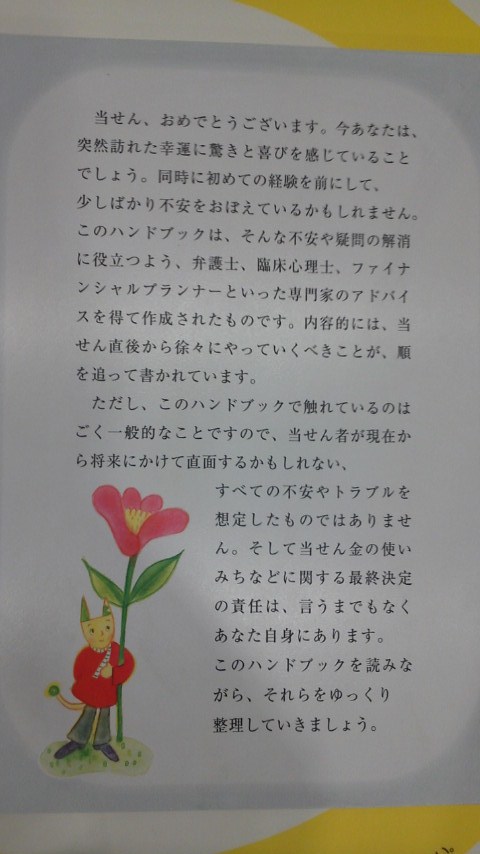 当せん、おめでとうございます。今あなたは、
突然訪れた幸運に驚きと喜びを感じていること
でしょう。同時に初めての経験を前にして、
少しばかり不安をおぼえているかもしれません。
このハンドブックは、そんな不安や疑問の解消
に役立つよう、弁護士、臨床心理士、ファイナ
ンシャルプランナーといった専門家のアドバイ
スを得て作成されたものです。内容的には、当
せん直後から徐々にやっていくべきことが、順
を追って書かれています。
ただし、このハンドブックで触れているのは
ごく一般的なことですので、当せん者が現在か
ら将来にかけて直面するかもしれない、
すべての不安やトラブルを
想定したものではありませ
ん。そして当せん金の使い
みちなどに関する最終決定
の責任は、言うまでもなく
あなた自身にあります。
このハンドブックを読みな
がら、それらをゆっくり
整理していきましょう。